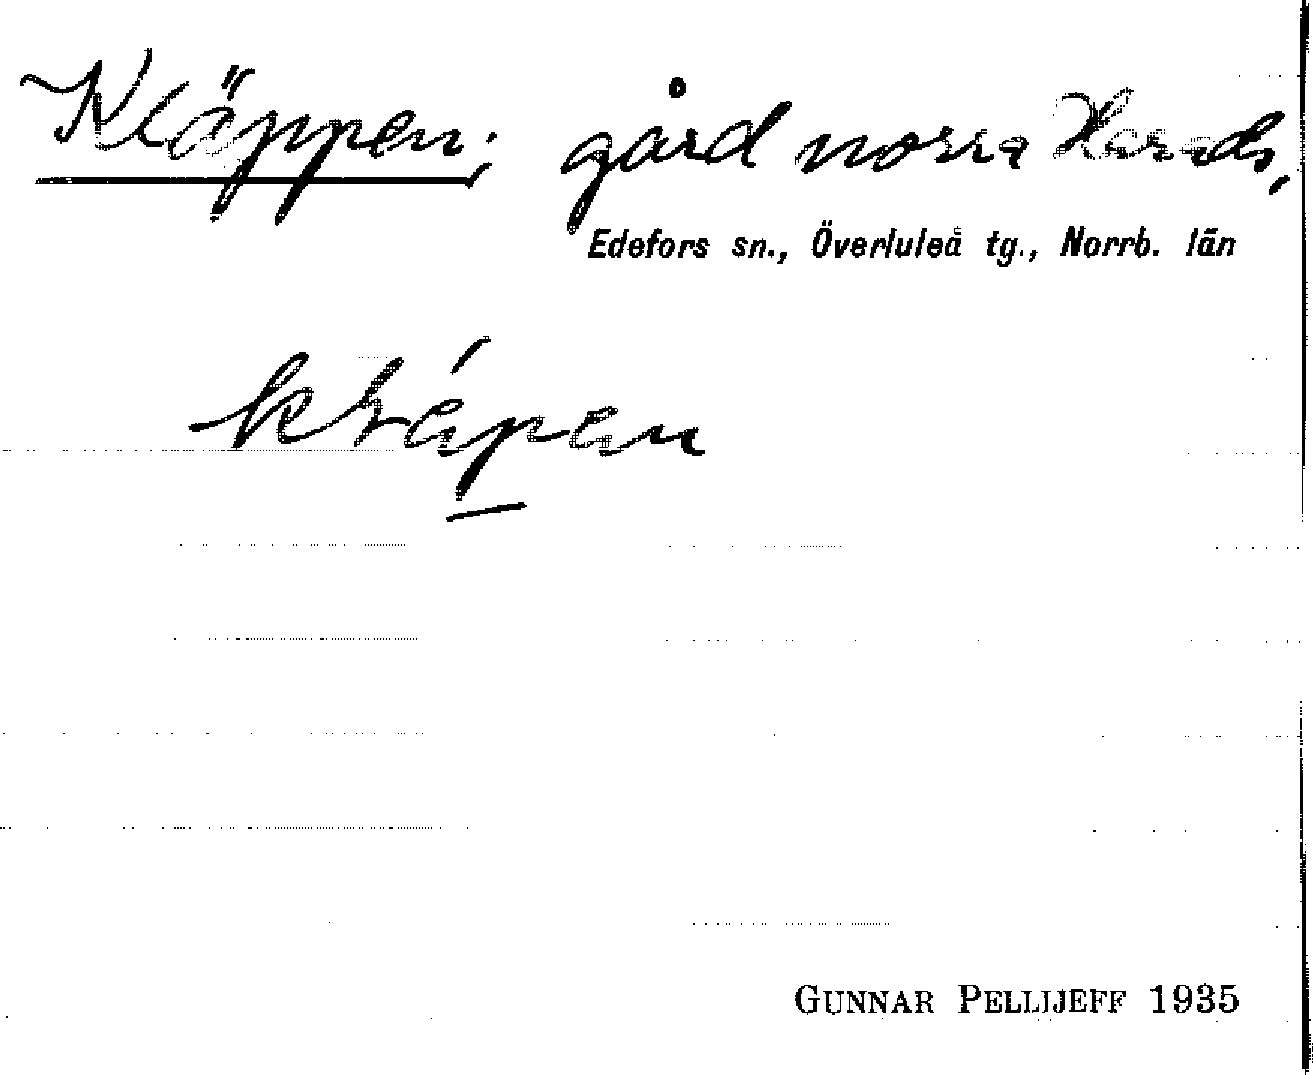 Kläppen; gård norra Harads,
Edefors sn., Överluleå tg., Norrb. län
GUNNAR PELLIJEFF 1935